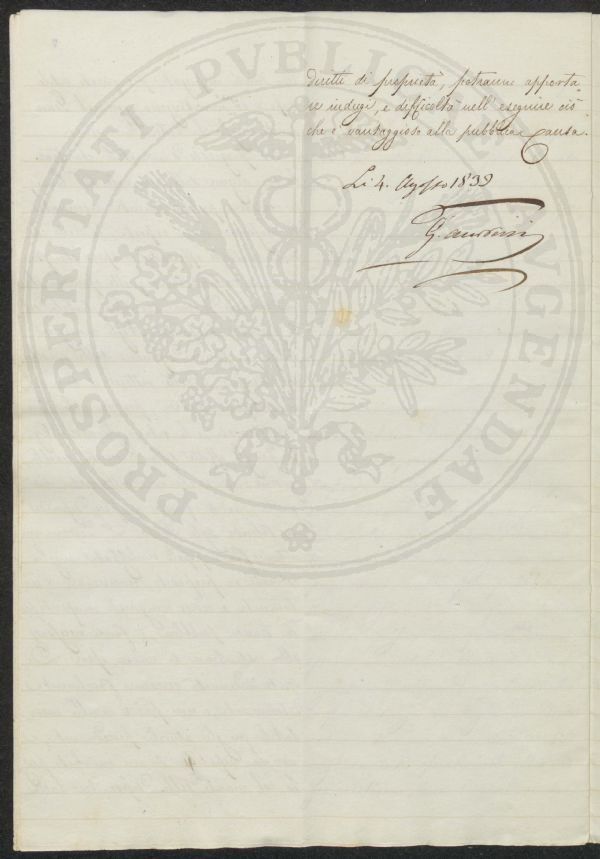 diretti di proprietà, potranno apporta-
re indugi, e difficoltà nell'eseguire ciò
che è vantaggioso alla pubblica Causa.
Li 4. Agosto 1839
PROSPERITATI PVBLICAE AVGENDAE